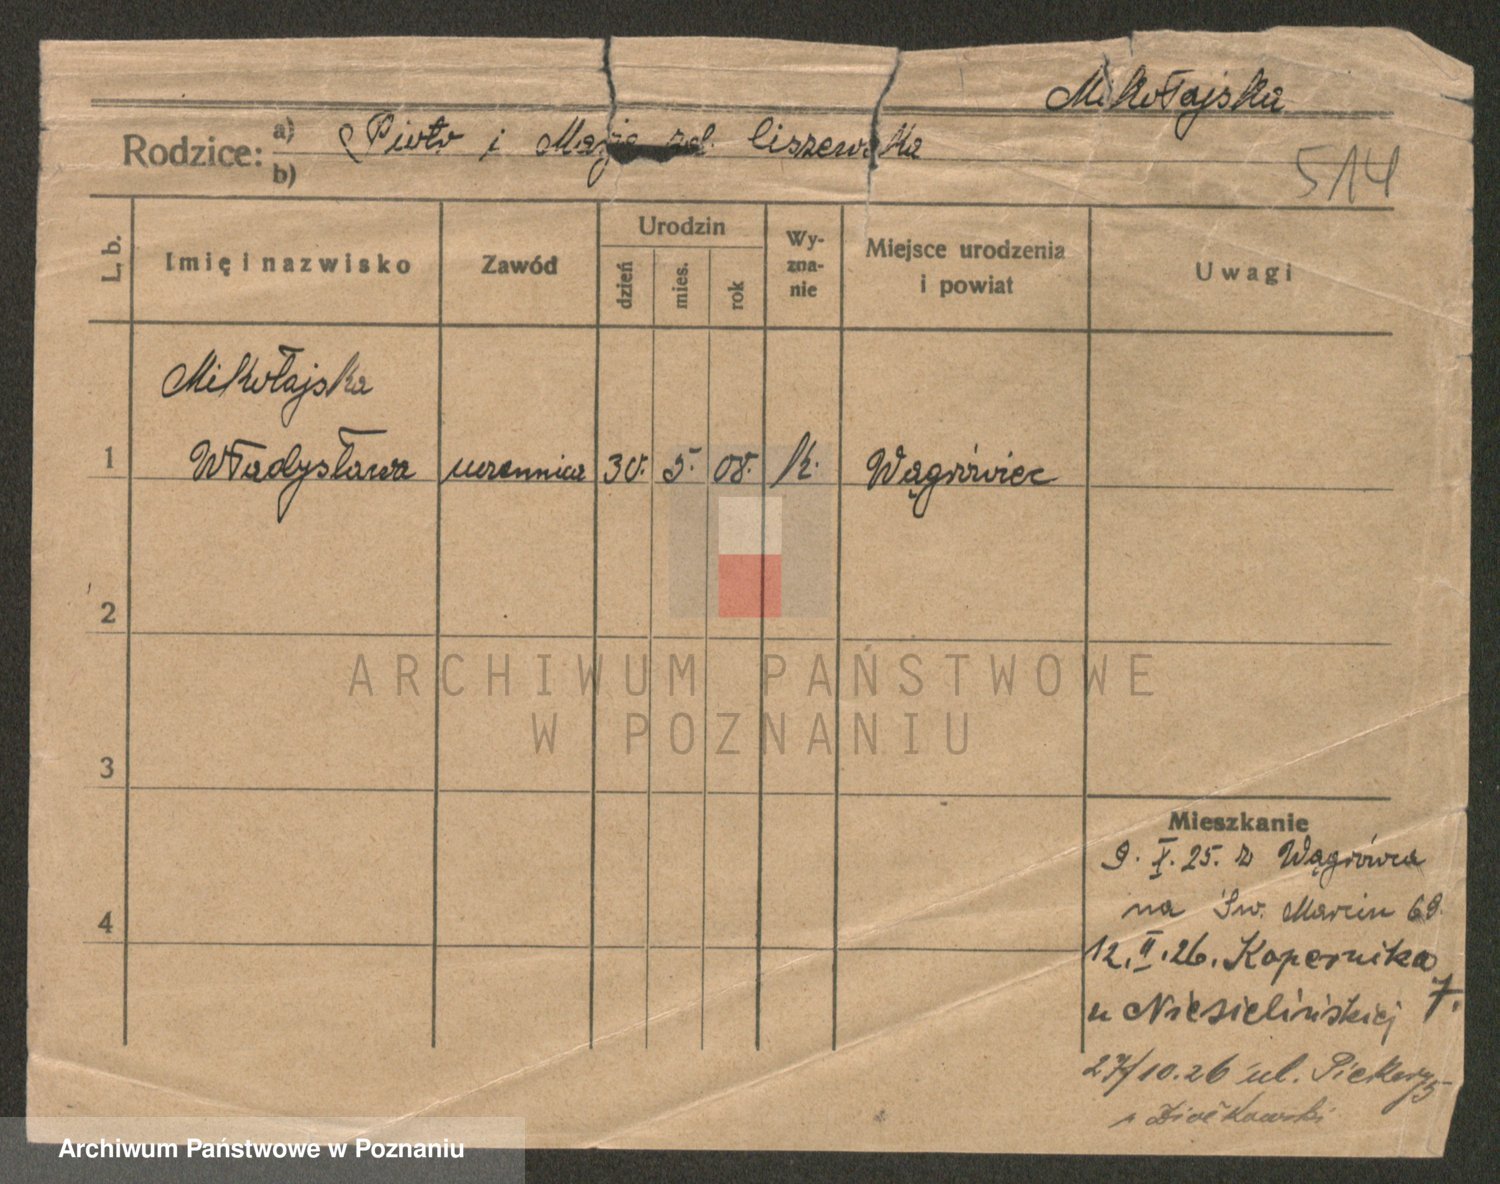 Mikołajska
Rodzice: a) Piotr i Marja zd. Liszewska
b)
514
L. b.
Imię i nazwisko
Zawód
Urodzin
dzień
mies.
rok
Wy-
zna-
nie
Miejsce urodzenia
i powiat
Uwagi
Mikołajska
1 Władysława uczennica 30. 5. 08. k. Wągrówiec
2
3
4
Mieszkanie
9. X. 25. z Wągrówca
na Św. Marcin 69.
12. II. 26. Kopernika 7.
u Niesielińskiej
27/10.26 ul. Piekary 5
ARCHIWUM PAŃSTWOWE
W POZNANIU
Archiwum Państwowe w Poznaniu